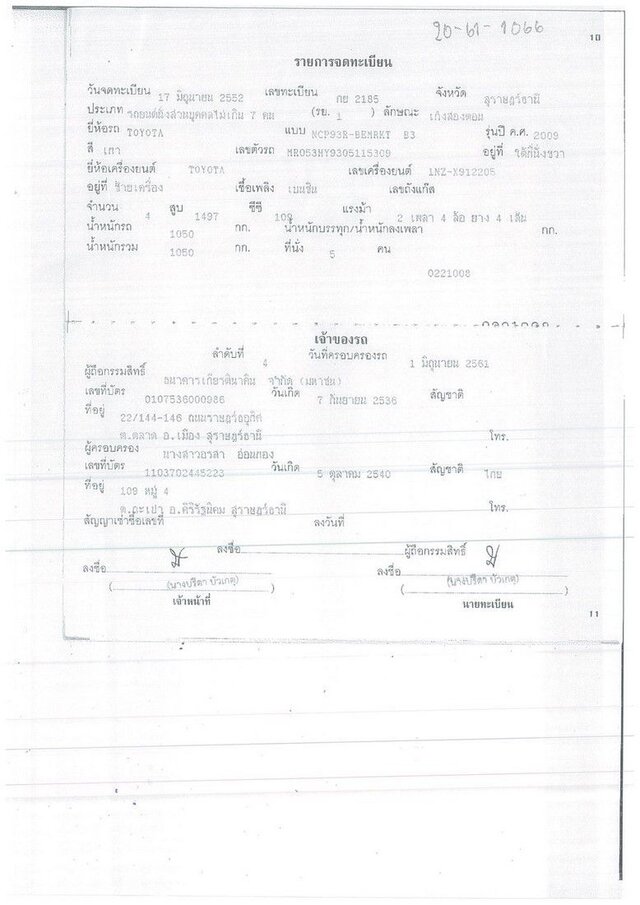 20-61-1066
10
รายการจดทะเบียน
วันจดทะเบียน 17 มิถุนายน 2552 เลขทะเบียน กย 2185 จังหวัด สุราษฎร์ธานี
ประเภท รถยนต์นั่งส่วนบุคคลไม่เกิน 7 คน (รย. 1 ) ลักษณะ เก๋งสองตอน
ยี่ห้อรถ TOYOTA แบบ NCP93R-BEMRKT B3 รุ่นปี ค.ศ. 2009
สี เทา เลขตัวรถ MR053HY9305115309 อยู่ที่ ใต้ที่นั่งขวา
ยี่ห้อเครื่องยนต์ TOYOTA เลขเครื่องยนต์ 1NZ-X912205
อยู่ที่ ซ้ายเครื่อง เชื้อเพลิง เบนซิน เลขถังแก๊ส
จำนวน 4 สูบ 1497 ซีซี 109 แรงม้า 2 เพลา 4 ล้อ ยาง 4 เส้น
น้ำหนักรถ 1050 กก. น้ำหนักบรรทุก/น้ำหนักลงเพลา กก.
น้ำหนักรวม 1050 กก. ที่นั่ง 5 คน
0221008
เจ้าของรถ
ลำดับที่ 4 วันที่ครอบครองรถ 1 มิถุนายน 2561
ผู้ถือกรรมสิทธิ์ ธนาคารเกียรตินาคิน จำกัด (มหาชน)
เลขที่บัตร 0107536000986 วันเกิด 7 กันยายน 2536 สัญชาติ
ที่อยู่ 22/144-146 ถนนราษฎร์อุทิศ
ต.ตลาด อ.เมือง สุราษฎร์ธานี โทร.
ผู้ครอบครอง นางสาวอรสา อ่อนทอง
เลขที่บัตร 1103702445223 วันเกิด 5 ตุลาคม 2540 สัญชาติ ไทย
ที่อยู่ 109 หมู่ 4
ต.กะเปา อ.คีรีรัฐนิคม สุราษฎร์ธานี โทร.
สัญญาเช่าซื้อเลขที่ ลงวันที่
ลงชื่อ ผู้ถือกรรมสิทธิ์
ลงชื่อ ลงชื่อ
(นางปรีดา บัวเกตุ) (นางปรีดา บัวเกตุ)
เจ้าหน้าที่ นายทะเบียน
11